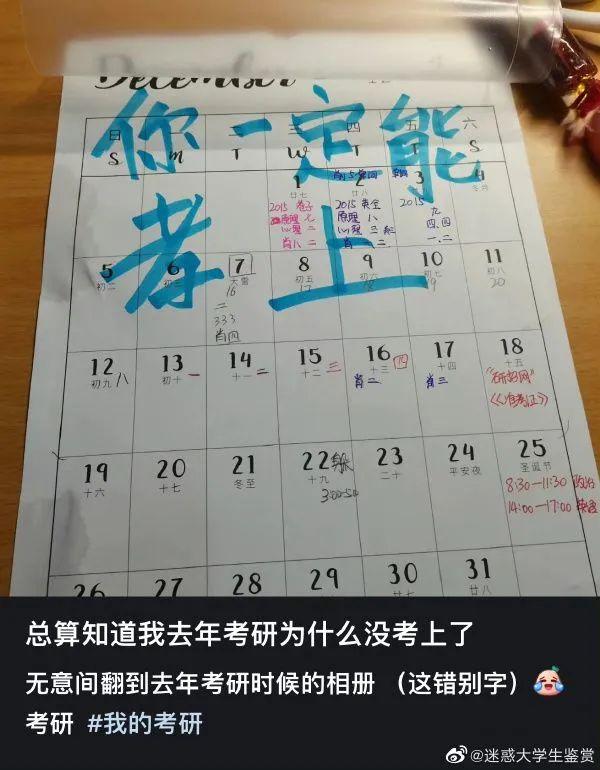 December
你一定能
孝上
日 二 三 四 五 六
S m T W T S
1 2 3 4
廿七 廿八 冬月
2015 卷子 2015 英全 2015
原理 七 原理 八 九
心理 二 心理 三 四.四
肖八 二 肖八 三 一.二
5 6 7 8 9 10 11
初二 初三 大雪 初五 初六 初七 初八
16 17 18 19 20
二
333
肖四
12 13 14 15 16 17 18
初九 初十 十一 十二 十三 十四 十五
八 一 二 三 四
肖二 肖三 "研招网"
《准考证》
19 20 21 22 23 24 25
十六 十七 冬至 十九 二十 平安夜 圣诞节
3:00-50 8:30—11:30 政治
14:00—17:00 英语
26 27 28 29 30 31
廿七 廿八
总算知道我去年考研为什么没考上了
无意间翻到去年考研时候的相册 （这错别字）
考研 #我的考研
@迷惑大学生鉴赏